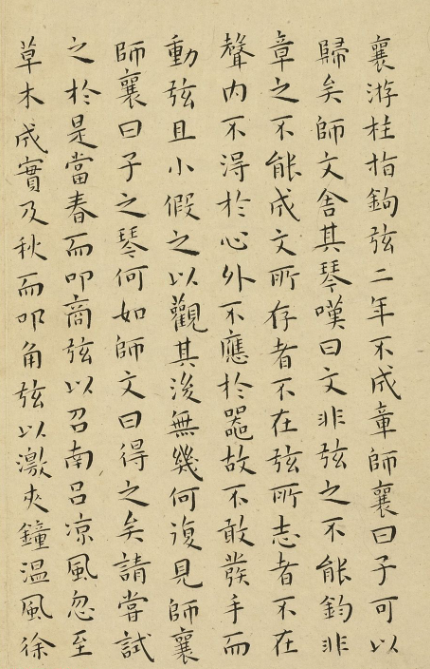 襄游柱指鉤弦二年不成章師襄曰子可以
歸矣師文舍其琴嘆曰文非弦之不能鈞非
章之不能成文所存者不在弦所志者不在
聲內不淂於心外不應於噐故不敢發手而
動弦且小假之以觀其後無幾何復見師襄
師襄曰子之琴何如師文曰得之矣請嘗試
之於是當春而叩商弦以召南呂凉風忽至
草木成實及秋而叩角弦以激夾鐘溫風徐